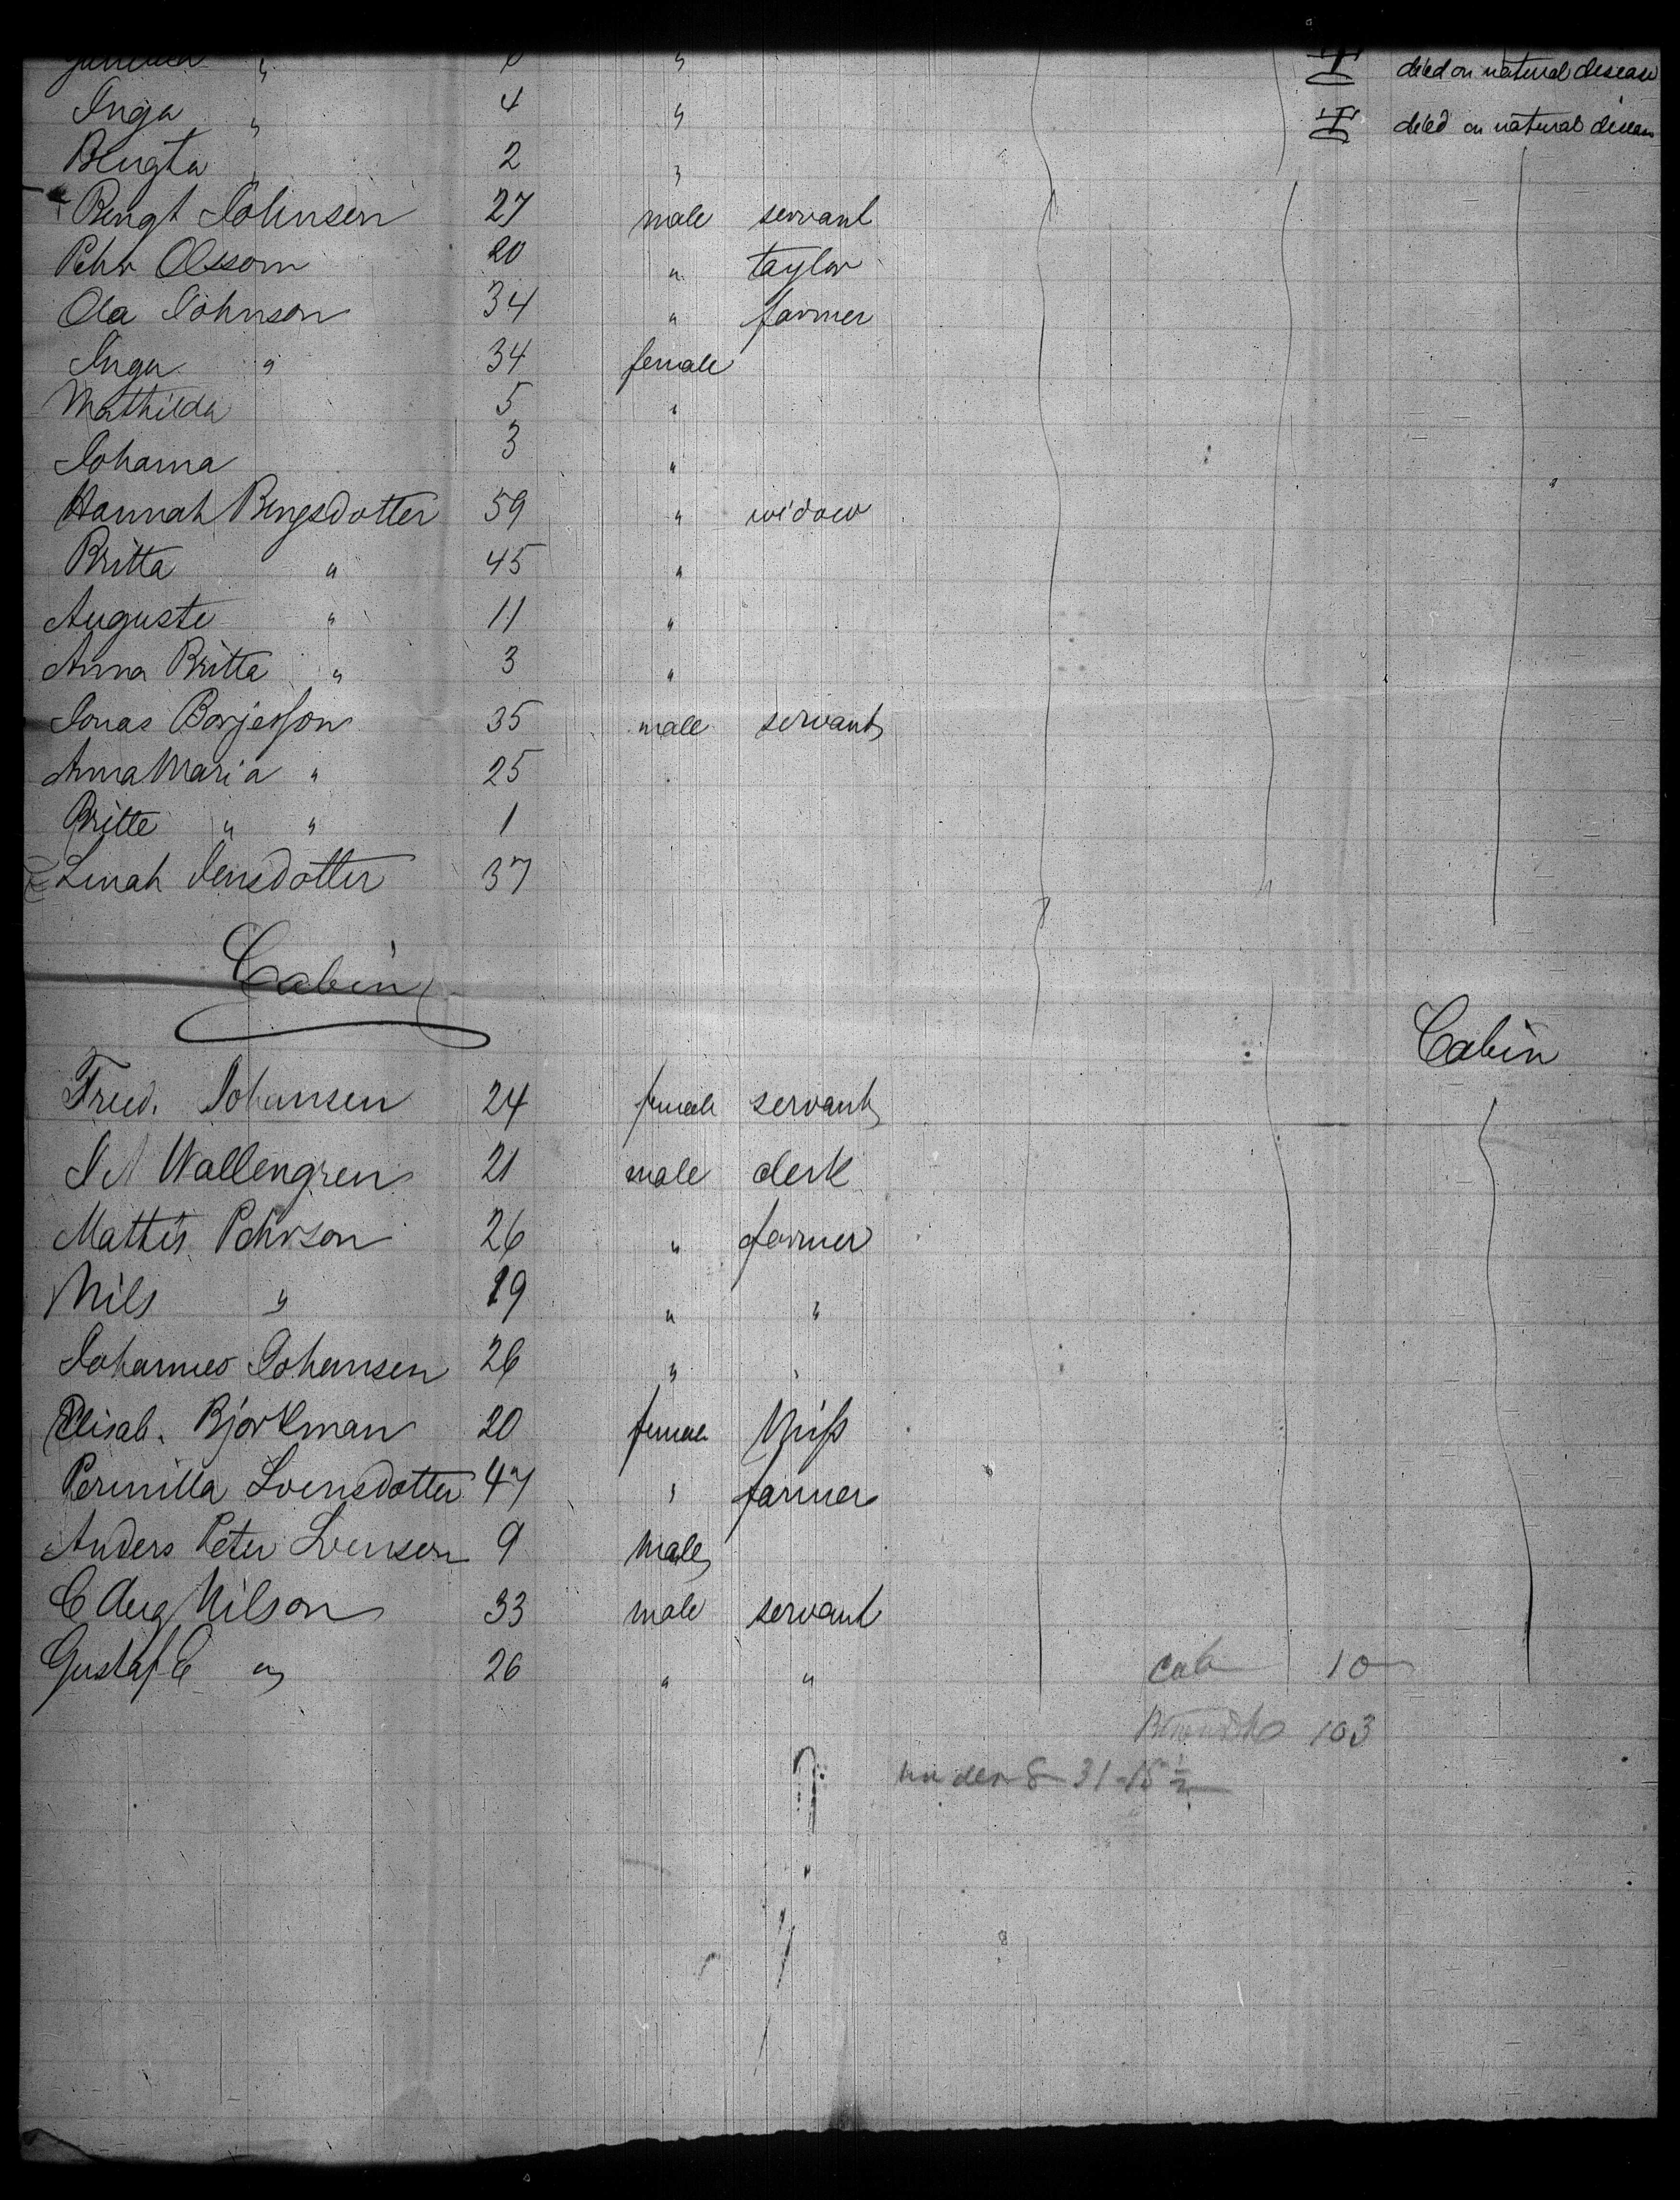 " " died on natural disease
Inga " 4 " died on natural disease
Bengta " 2 "
Bengt Johnsen 27 male servant
Pehr Olssom 20 " taylor
Ola Johnson 34 " farmer
Inga " 34 female
Mathilda 5 "
Johama 3 "
Hannah Bengsdotter 59 " widow
Britta " 45 "
Auguste " 11 "
Anna Britta " 3 "
Jonas Borjesson 35 male servant
Anna Maria " 25
Britte " " 1
Linah Jensdotter 37
Cabin
Cabin
Fred. Johansen 24 female servant
Wallengren 21 male clerk
Mattis Pehrson 26 " farmer
Nils " 19 " "
Johannes Johansen 26 " "
Elisab. Bjorkman 20 female Miss
Pernilla Svensdotter 47 " farmer
Anders Peter Svensen 9 male
C Aug Nilson 33 male servant
Gustaf C " 26 " "
cab 10
103
under 8 31-15 1/2